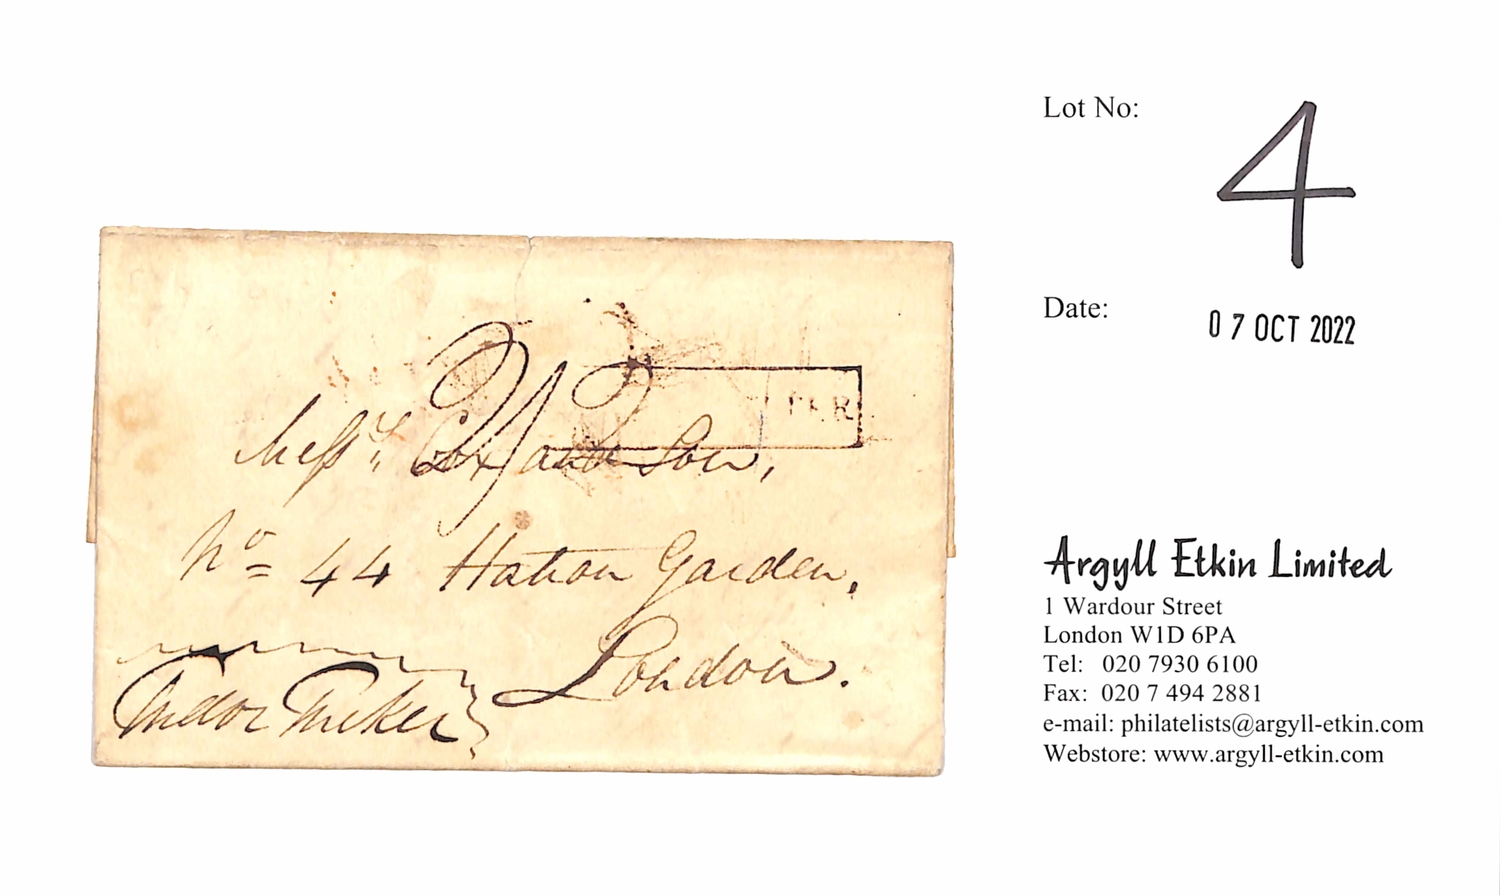 Lot No: 4
Date: 07 OCT 2022
Mess.rs Cox and Son,
No 44 Hatton Garden,
London.
Tudor Tucker
Argyll Etkin Limited
1 Wardour Street
London W1D 6PA
Tel: 020 7930 6100
Fax: 020 7 494 2881
e-mail: philatelists@argyll-etkin.com
Webstore: www.argyll-etkin.com